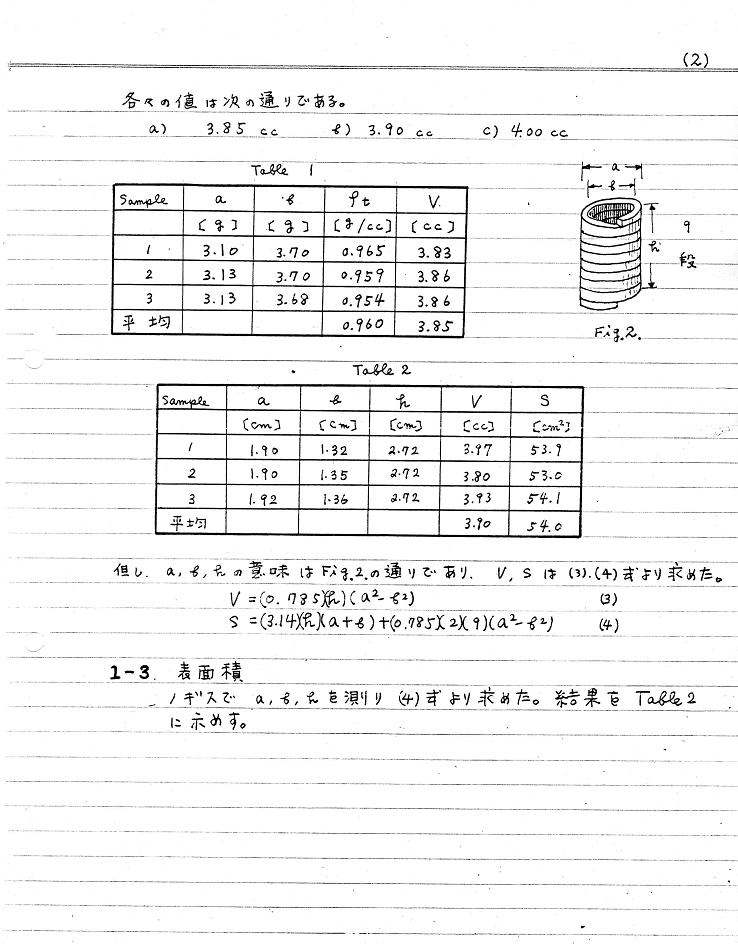 (2)
各々の値は次の通りである。
a) 3.85 cc b) 3.90 cc c) 4.00 cc
Table 1
Sample a b ρt V
[g] [g] [g/cc] [cc]
1 3.10 3.70 0.965 3.83
2 3.13 3.70 0.959 3.86
3 3.13 3.68 0.954 3.86
平均 0.960 3.85
a
b
h
9
段
Fig.2.
Table 2
Sample a b h V S
[cm] [cm] [cm] [cc] [cm²]
1 1.90 1.32 2.72 3.97 53.9
2 1.90 1.35 2.72 3.80 53.0
3 1.92 1.36 2.72 3.93 54.1
平均 3.90 54.0
但し、a, b, hの意味はFig.2.の通りであり、V, Sは(3).(4)式より求めた。
V=(0.785)(h)(a²-b²) (3)
S=(3.14)(h)(a+b)+(0.785)(2)(9)(a²-b²) (4)
1-3. 表面積
ノギスでa, b, hを測り(4)式より求めた。結果をTable 2
に示めす。